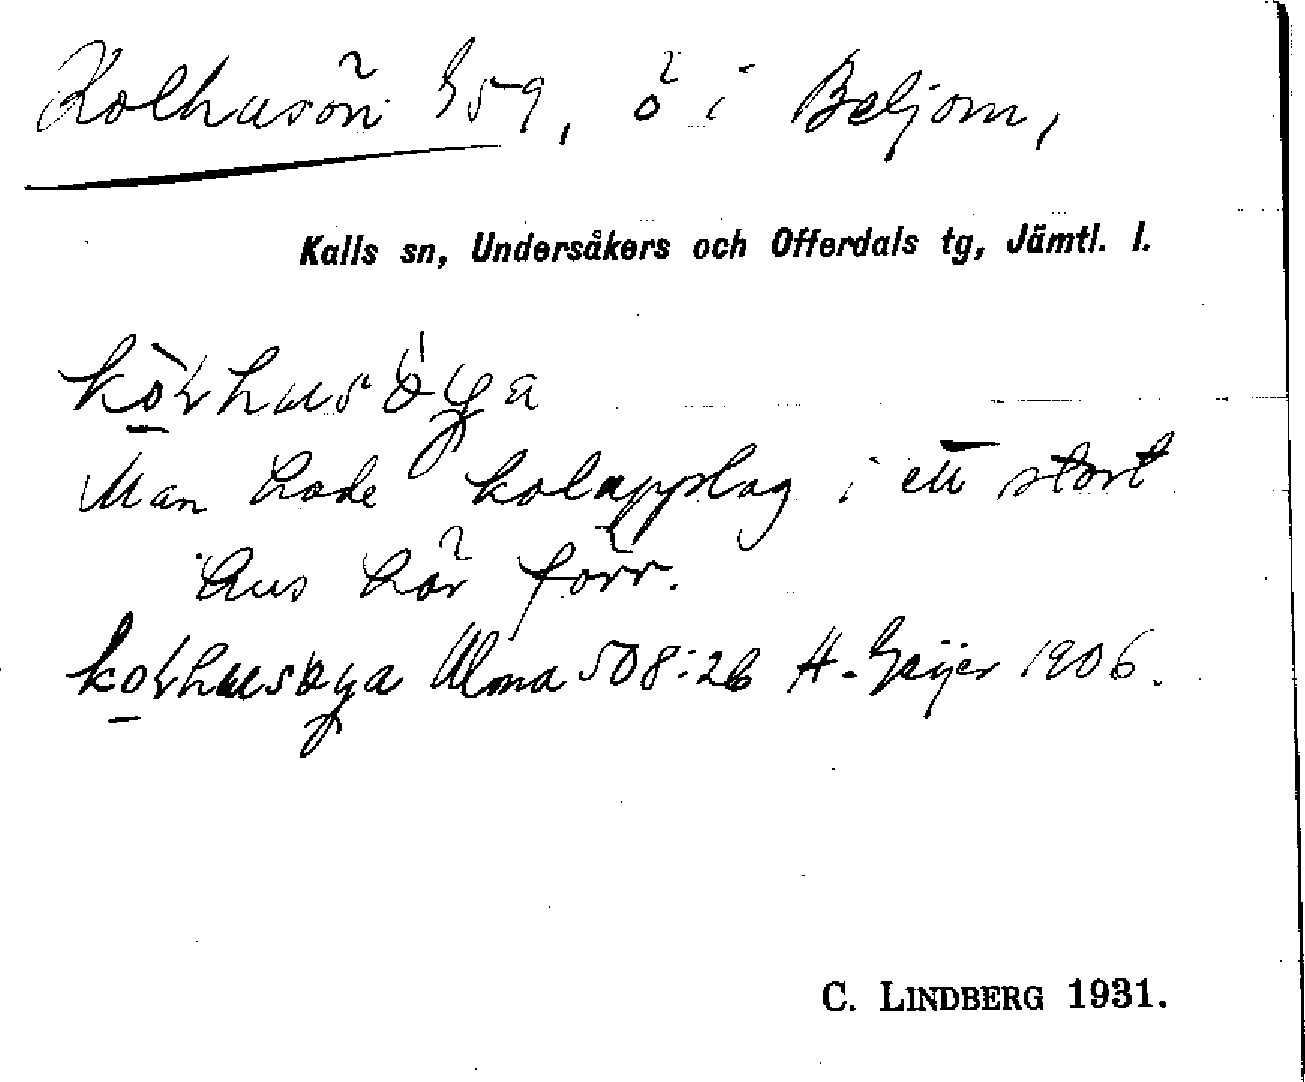 Kolhusön G59, ö i Beljom,
Kalls sn, Undersåkers och Offerdals tg, Jämtl. l.
Man hade kolupplag i ett stort
hus här förr.
Ulma 508:26 H. Geijer 1906.
C. LINDBERG 1931.